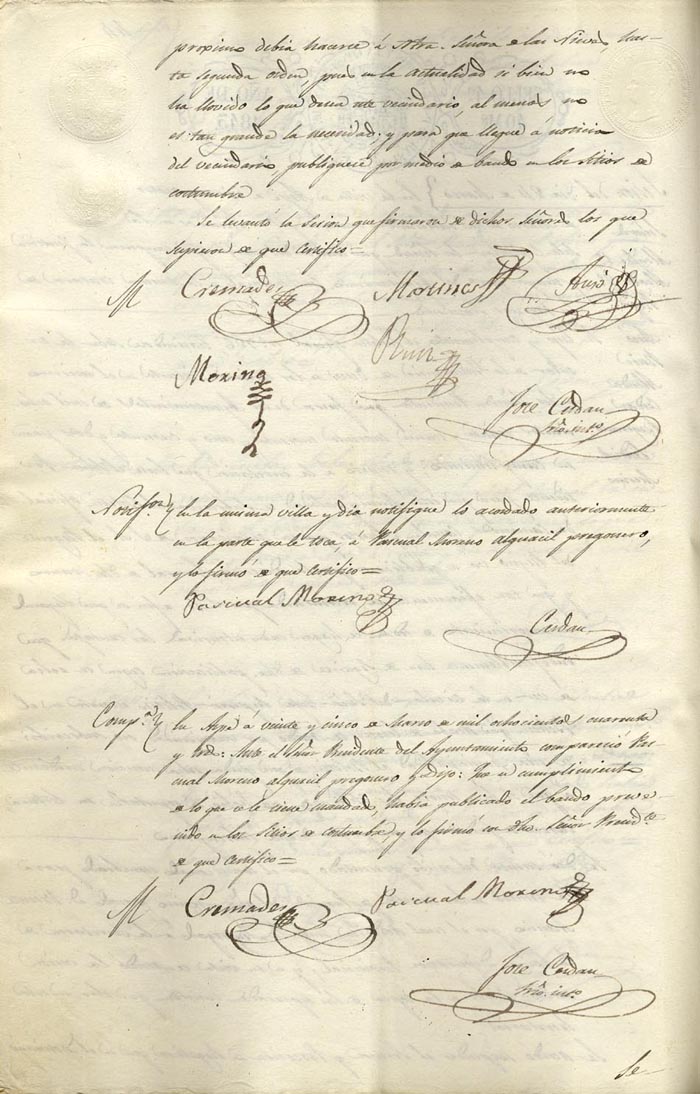 proximo debia hacerce á Ntra. Señora de las Nieves, has-
ta segunda orden, pues en la actualidad si bien no
ha llovido lo que desea este vecindario, al menos no
es tan grande la necesidad; y para que llegue a noticia
del vecindario, publiquese por medio de bando en los sitios de
costumbre
Se levantó la Sesion que firmaron de dichos Señores los que
supieron de que certifico=
Cremades
Moreno
Ruiz
Jose Cerdan
Srio. into.
Notifon. En la misma villa y dia notifique lo acordado anteriormente
en la parte que le toca, á Pascual Moreno alguacil pregonero,
y lo firmó de que certifico=
Pascual Moreno
Cerdan
Comp.a En Aspe á veinte y cinco de Marzo de mil ochocientos cuarenta
y tres: Ante el Señor Presidente del Ayuntamiento compareció Pas-
cual Moreno alguacil pregonero y dijo: Que en cumplimiento
de lo que se le tiene mandado, habia publicado el bando preve-
nido en los Sitios de costumbre, y lo firmó con dho. Señor Presid.te
de que certifico=
Cremades
Pascual Moreno
Jose Cerdan
Srio. into.
Se-